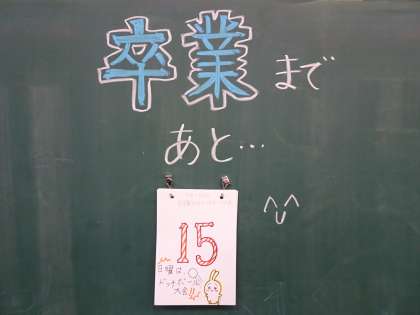 卒業まで
あと…
15
日曜は、
ドッヂボール
大会!!